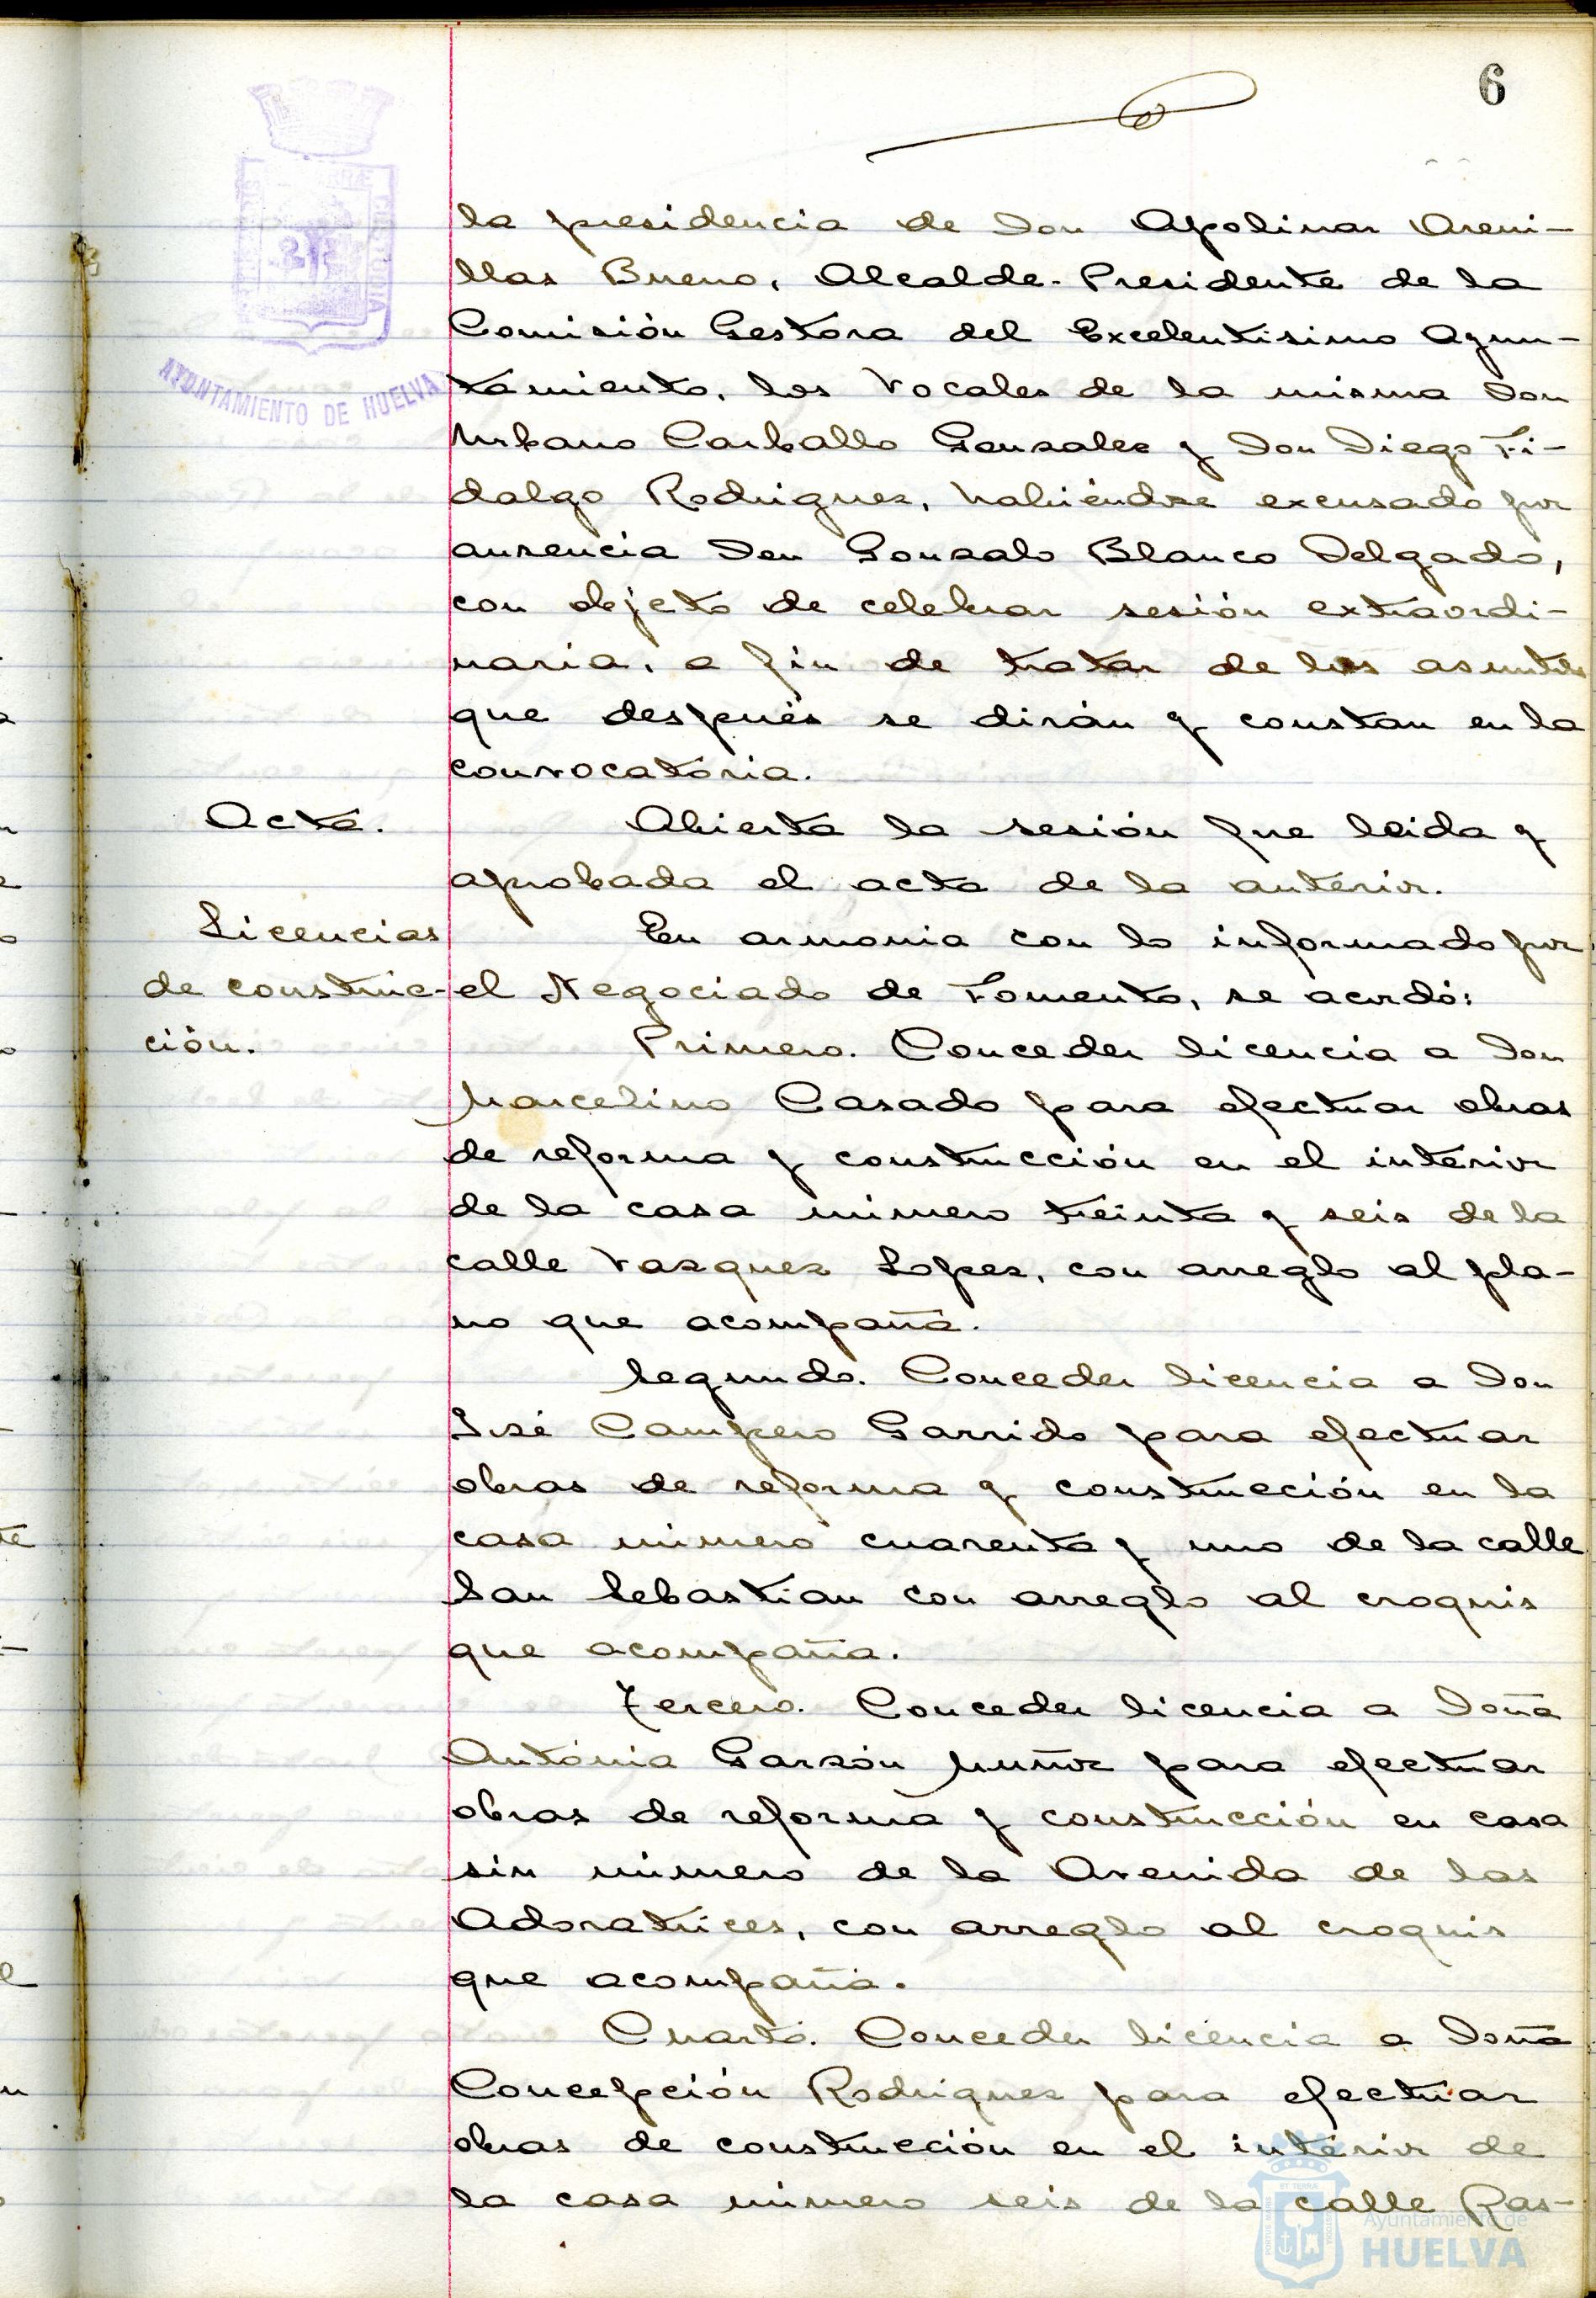 6
la presidencia de Don Apolinar Areni-
llas Bueno, Alcalde-Presidente de la
Comisión Gestora del Excelentisimo Ayun-
tamiento, los Vocales de la misma Don
Urbano Carballo Gonzalez y Don Diego Fi-
dalgo Rodriguez, habiéndose excusado por
ausencia Don Gonzalo Blanco Delgado,
con objeto de celebrar sesión extraordi-
naria, a fin de tratar de los asuntos
que después se dirán y constan en la
convocatoria.
Acta.
Abierta la sesión fue leida y
aprobada el acta de la anterior.
Licencias
de construc-
ción.
En armonia con lo informado por
el Negociado de Fomento, se acordó:
Primero. Conceder licencia a Don
Marcelino Casado para efectuar obras
de reforma y construcción en el interior
de la casa número treinta y seis de la
calle Vazquez Lopez, con arreglo al pla-
no que acompaña.
Segundo. Conceder licencia a Don
José Campero Garrido para efectuar
obras de reforma y construcción en la
casa número cuarenta y uno de la calle
San Sebastian con arreglo al croquis
que acompaña.
Tercero. Conceder licencia a Doña
Antonia Garzón Muñoz para efectuar
obras de reforma y construcción en casa
sin número de la Avenida de las
Adoratrices, con arreglo al croquis
que acompaña.
Cuarto. Conceder licencia a Doña
Concepción Rodriguez para efectuar
obras de construcción en el interior de
la casa número seis de la calle Ras-
AYUNTAMIENTO DE HUELVA
Ayuntamiento de
HUELVA